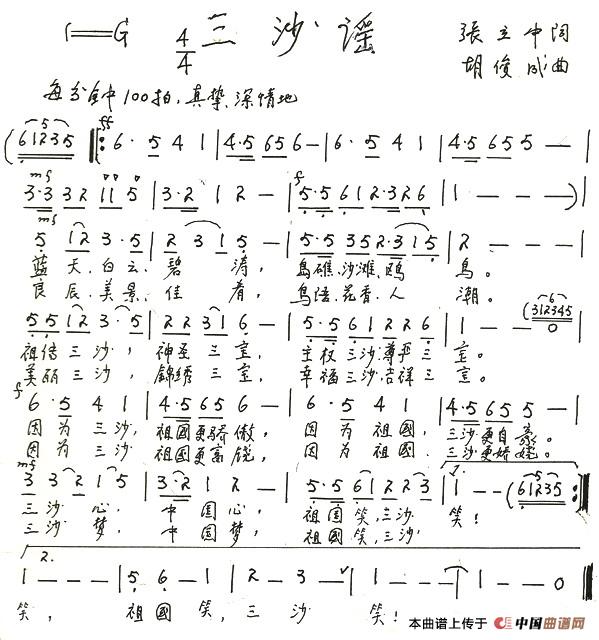 1=G 4/4 三沙谣 張立中詞
胡俊成曲
每分钟100拍,真挚、深情地
(61235 ‖: 6· 5 4 1 | 4·5 656 - | 6· 5 4 1 | 4·5 655 - |
3·3 32 11 5 | 3·2 1 2 - | 5·5 61 2·326 | 1 - - - )
5 12 3·5 | 2 3 1 5 - | 5·5 35 2·3 15 | 2 - - - |
蓝天、白云、碧涛, 鳥礁、沙滩、鸥鳥。
良辰、美景、佳肴, 鳥语、花香、人潮。
(312345
55 12 3· 5 | 22 31 6 - | 5·5 61 22 6 | 1 - - 0 |
祖传三沙,神圣三宝, 主权三沙,尊严三宝。
美丽三沙,錦绣三宝, 幸福三沙,吉祥三宝。
6· 5 4 1 | 4·5 65 6 - | 6· 5 4 1 | 4·5 65 5 - |
因为三沙,祖國更骄傲, 因为祖國,三沙更自豪。
因为三沙 祖國更高锐, 因为祖國 三沙更娇娆。
3 32 15 | 3·2 1 2 - | 5·5 61 22 3 | 1 - - (61235 :‖
三沙心,中国心, 祖国笑,三沙笑!
三沙梦,中国梦, 祖國笑,三沙
2.
1 - - - | 5· 6· - 1 | 2 - 3 - | 1 - - - | 1 - - 0 ‖
笑, 祖國笑,三沙笑!
本曲谱上传于 中国曲谱网